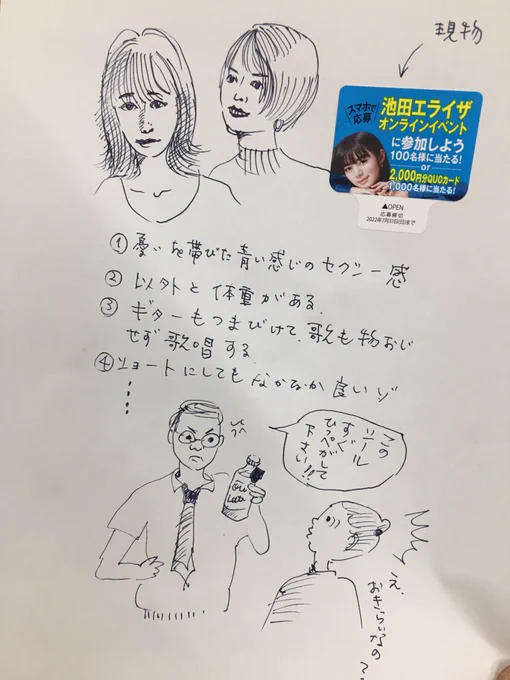 現物
スマホで
応募
池田エライザ
オンラインイベント
に参加しよう
100名様に当たる!
or
2,000円分QUOカード
1,000名様に当たる!
▲OPEN
応募締切
2022年7月31日(日)まで
①憂いを帯びた青い感じのセクシー感
②以外と体重がある.
③ギターもつまびけて、歌も物おじ
せず歌唱する.
④ショートにしてもなかなか良いゾ
このシール
すぐ
ひっぺがして
下さい!!
え、
おきらいなの??